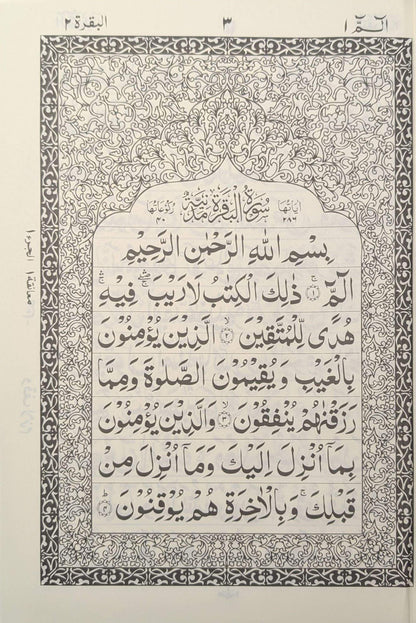 الٓمّٓ ١
٣
البقرة ٢
اٰیاتها ٢٨٦ سُوْرَةُ الْبَقَرَةِ مَدَنِیَّةٌ رکوعاتها ٤٠
بِسْمِ اللّٰهِ الرَّحْمٰنِ الرَّحِیْمِ
الٓمّٓ ۚ﴿١﴾ ذٰلِكَ الْكِتٰبُ لَا رَیْبَ ۛۚ فِیْهِ ۛ
هُدًی لِّلْمُتَّقِیْنَ ۙ﴿٢﴾ الَّذِیْنَ یُؤْمِنُوْنَ
بِالْغَیْبِ وَ یُقِیْمُوْنَ الصَّلٰوةَ وَمِمَّا
رَزَقْنٰهُمْ یُنْفِقُوْنَ ۙ﴿٣﴾ وَالَّذِیْنَ یُؤْمِنُوْنَ
بِمَاۤ اُنْزِلَ اِلَیْكَ وَمَاۤ اُنْزِلَ مِنْ
قَبْلِكَ ۚ وَبِالْاٰخِرَةِ هُمْ یُوْقِنُوْنَ ؕ﴿٤﴾
معانقة ١ الجزء ١